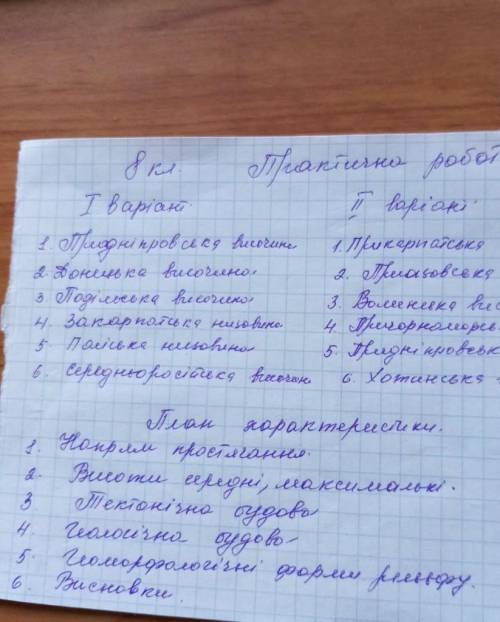 8 кл. Практична робот
І варіант ІІ варіант
1. Придніпровська височина 1. Прикарпатська
2. Донецька височина 2. Приазовська
3 Подільська височина 3. Волинська вис
4. Закарпатська низовина 4 Причорноморсь
5 Поліська низовина 5. Придніпровськ
6. Середньоросійська височин 6. Хотинська
План характеристики.
1. Напрям простягання.
2. Висоти середні, максимальні.
3 Тектонічна будова
4. Геологічна будова
5. Геоморфологічні форми рельєфу.
6. Висновки.